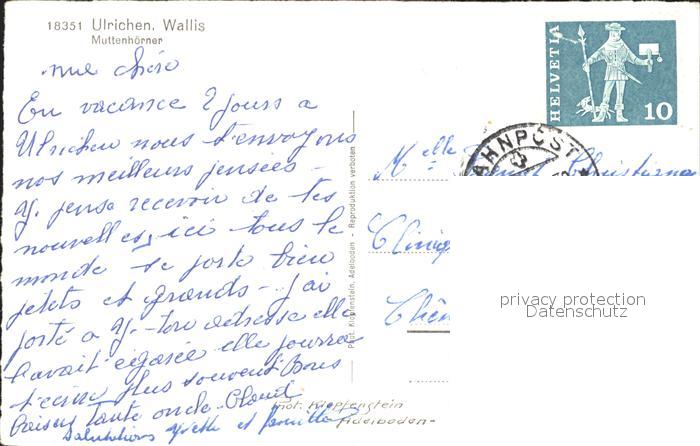 18351 Ulrichen, Wallis
Muttenhörner
HELVETIA
10
AHNPOST
ma chère
En vacance 2 jours a
Ulrichen nous t'envoyons
nos meilleurs pensées -
Y. pense recevoir de tes
nouvelles, ici tous le
monde se porte bien
petits et grands - j'ai
porté a Y. ton adresse elle
l'avait égarée elle pourra
t'écrire plus souvent Bons
Baisers Tante oncle Cloud
Salutations Yvette et famille
Melle
Clini
Chên
privacy protection
Datenschutz
Phot. Klopfenstein, Adelboden - Reproduktion verboten
Phot. Klopfenstein
Adelboden-